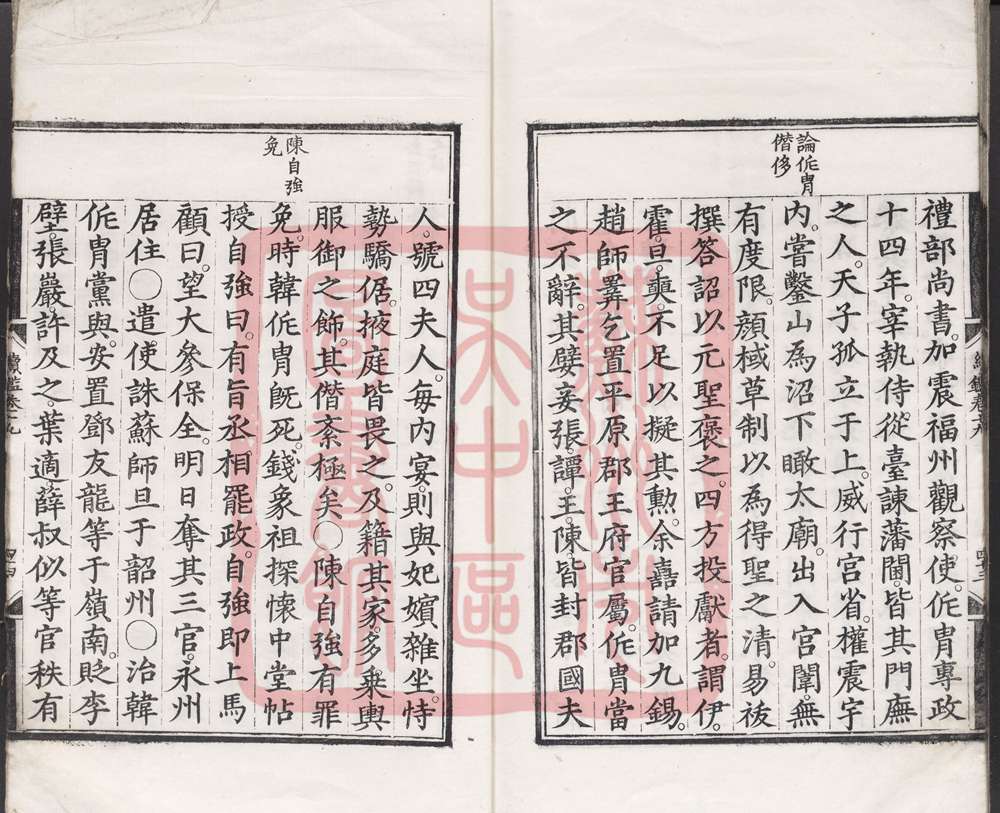 論侂冑
僭侈
禮部尚書。加震福州觀察使。侂冑專政
十四年。宰執侍從。臺諫藩閫。皆其門廡
之人。天子孤立于上。威行宮省。權震宇
內。嘗鑿山為沼。下瞰太廟。出入宮闈。無
有度限。顔棫草制。以為得聖之清。易祓
撰答詔。以元聖褒之。四方投獻者。謂伊
霍旦奭。不足以擬其勲。余嚞請加九錫。
趙師𢍰乞置平原郡王府官屬。侂冑當
之不辭。其嬖妾張。譚。王。陳。皆封郡國夫
陳自強
免
人。號四夫人。每內宴則與妃嬪雜坐。恃
勢驕倨。掖庭皆畏之。及籍其家。多乗輿
服御之飾。其僭紊極矣○陳自強有罪
免。時韓侂冑既死。錢象祖探懷中堂帖
授自強曰。有旨丞相罷政。自強即上馬
顧曰。望大參保全。明日奪其三官。永州
居住○遣使誅蘇師旦于韶州○治韓
侂冑黨與。安置鄧友龍等于嶺南。貶李
壁。張巖。許及之。葉適。薛叔似等官秩有
續鑑卷三九
四四